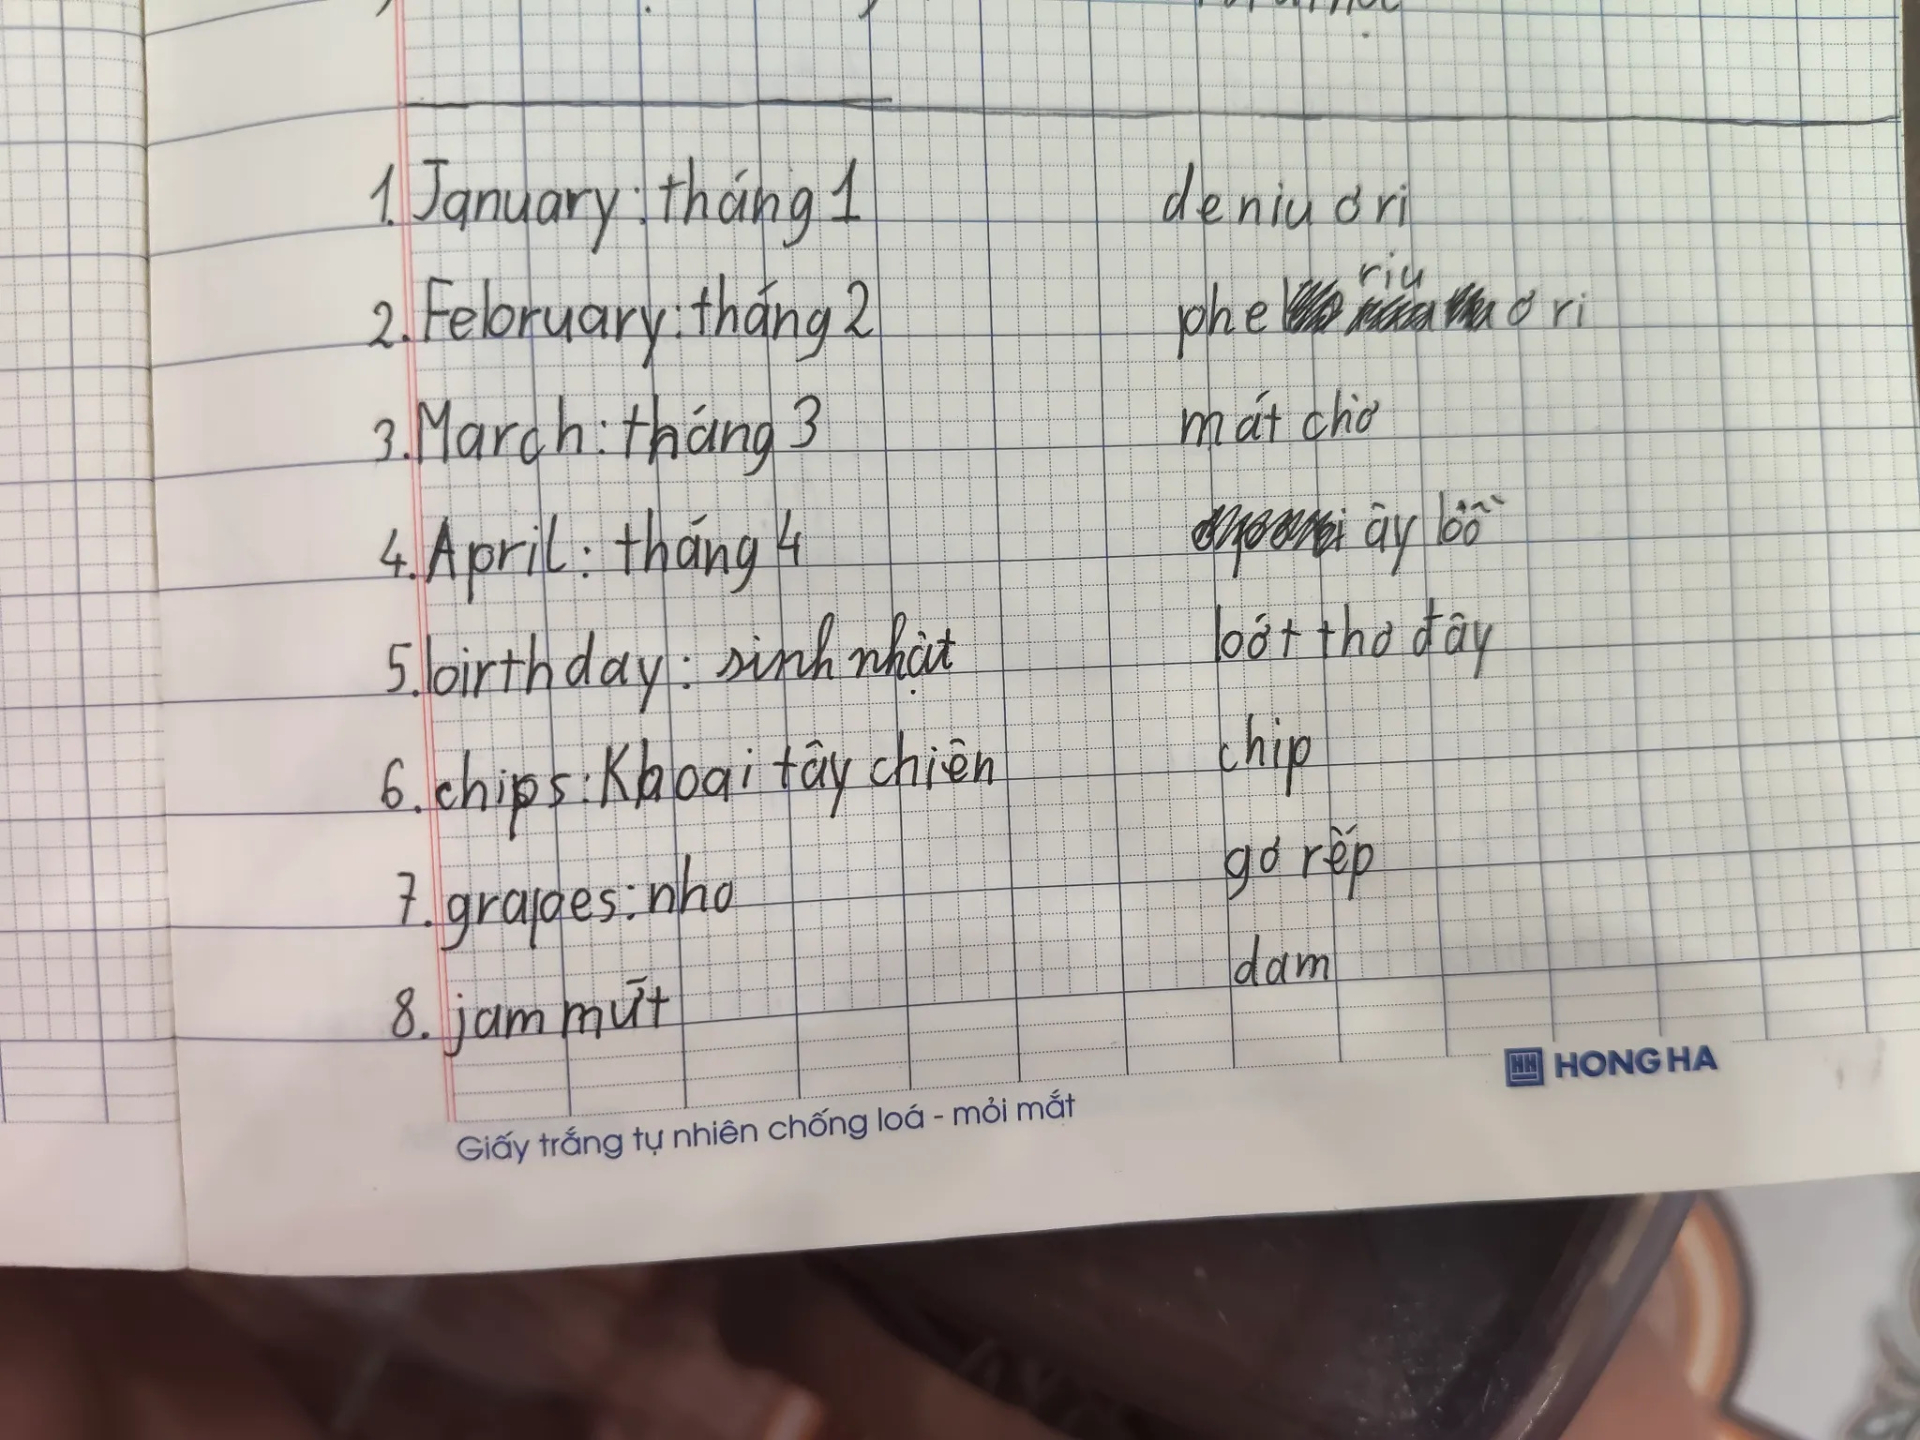 1. January: tháng 1 deniu ơri
2. February: tháng 2 phe riu ơ ri
3. March: tháng 3 mát chờ
4. April: tháng 4 ây
5. birthday: sinh nhật bớt thơ đây
6. chips: Khoai tây chiên chip
7. grapes: nho gơ rếp
8. jam mứt dam
HONG HA
Giấy trắng tự nhiên chống loá - mỏi mắt